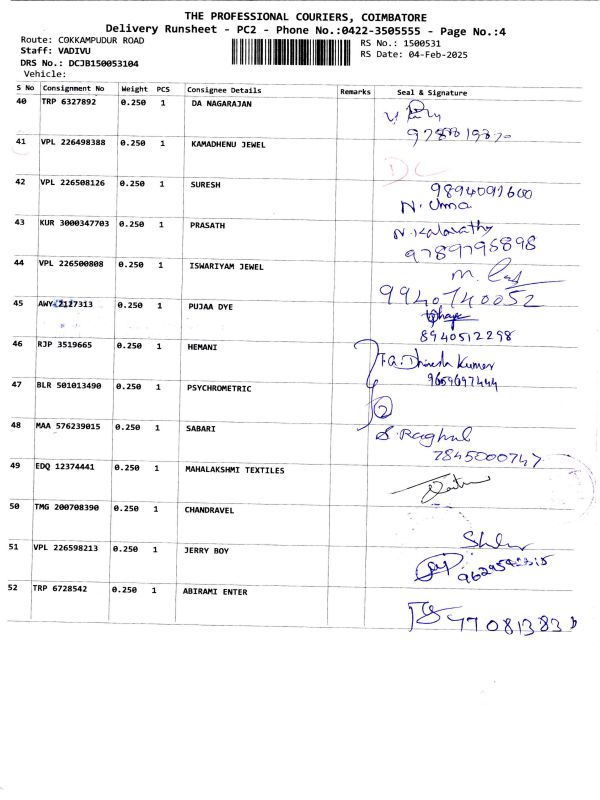 THE PROFESSIONAL COURIERS, COIMBATORE
Delivery Runsheet - PC2 - Phone No.:0422-3505555 - Page No.:4
Route: COKKAMPUDUR ROAD
Staff: VADIVU
RS No.: 1500531
RS Date: 04-Feb-2025
DRS No.: DCJB150053104
Vehicle:
S No Consignment No Weight PCS Consignee Details Remarks Seal & Signature
40 TRP 6327892 0.250 1 DA NAGARAJAN
41 VPL 226498388 0.250 1 KAMADHENU JEWEL
DC
42 VPL 226508126 0.250 1 SURESH
9894091600
N. Uma
43 KUR 3000347703 0.250 1 PRASATH
N. Kalavathy
9789795898
44 VPL 226500808 0.250 1 ISWARIYAM JEWEL
9940740052
45 AWY 2127313 0.250 1 PUJAA DYE
8940512298
46 RJP 3519665 0.250 1 HEMANI
Dhinesh Kumar
9659697444
47 BLR 501013490 0.250 1 PSYCHROMETRIC
2
48 MAA 576239015 0.250 1 SABARI
S. Raghul
7845000747
49 EDQ 12374441 0.250 1 MAHALAKSHMI TEXTILES
50 TMG 200708390 0.250 1 CHANDRAVEL
51 VPL 226598213 0.250 1 JERRY BOY
52 TRP 6728542 0.250 1 ABIRAMI ENTER